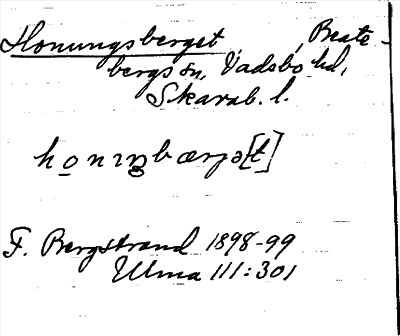 Honungsberget, Beate-
bergs sn, Vadsbo hd,
Skarab. l.
F. Bergstrand 1898-99
Ulma 111:301